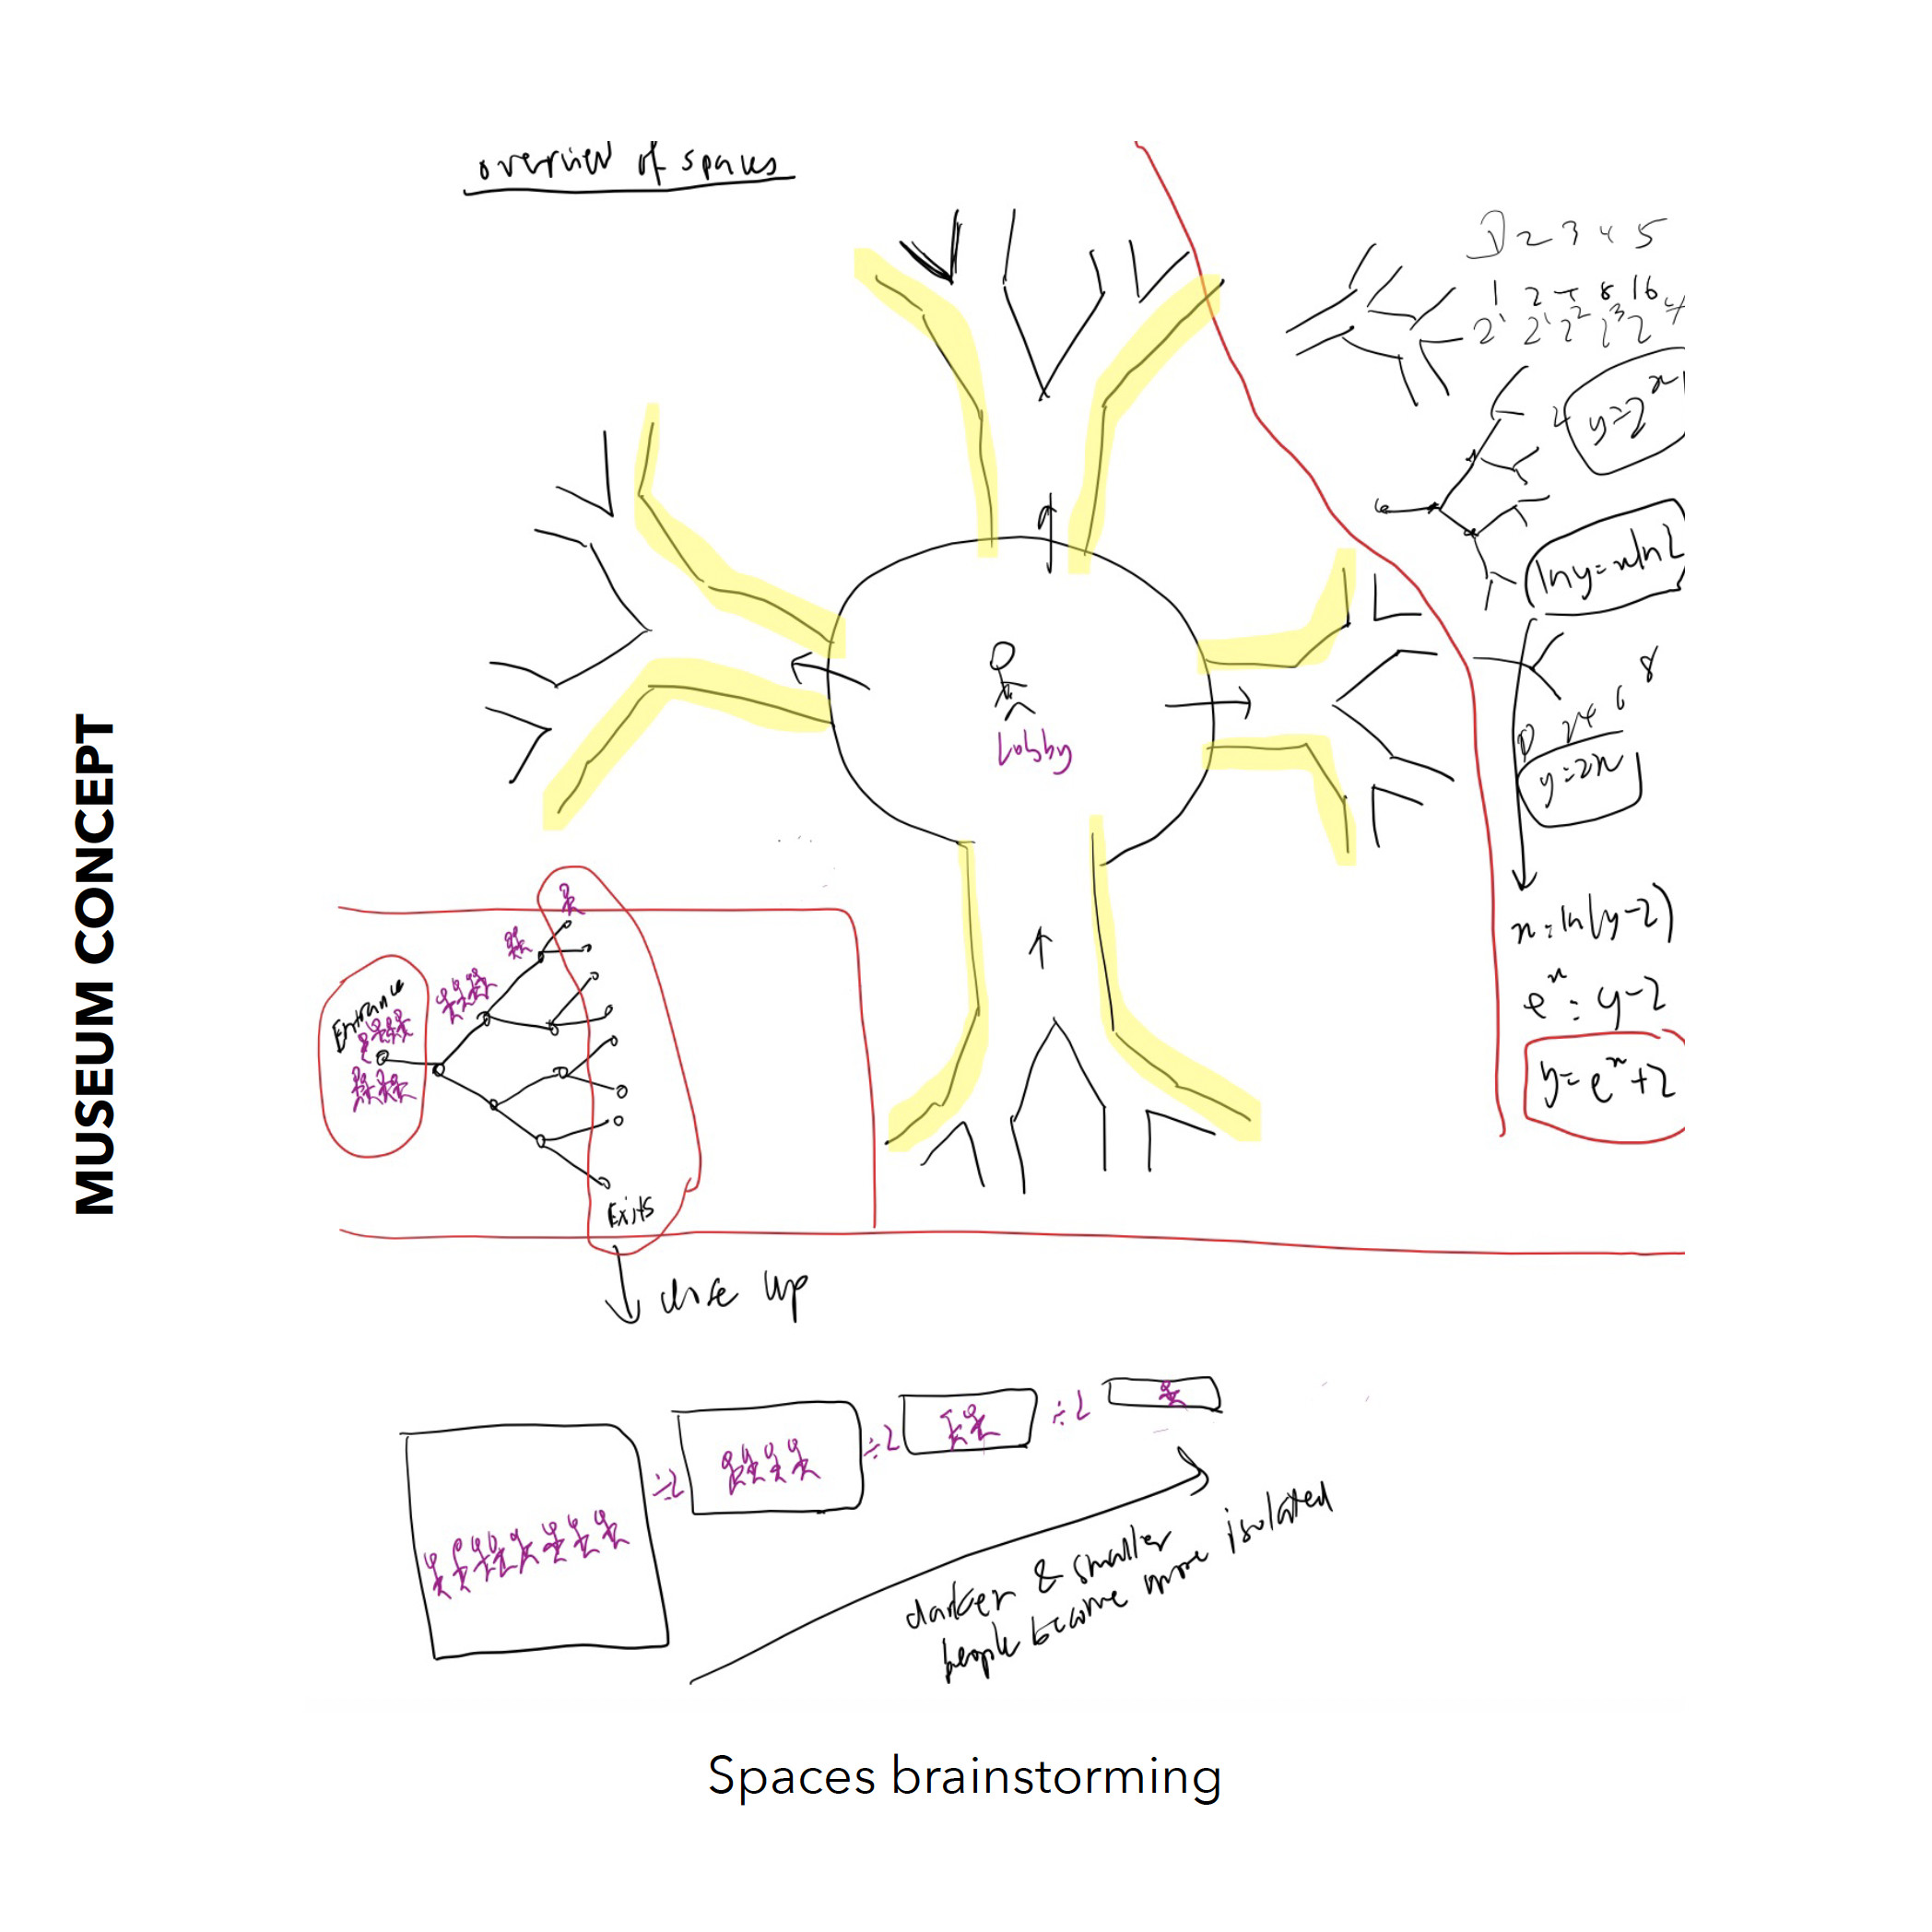 MUSEUM CONCEPT
overview of spaces
1 2 3 4 5
1 2 4 8 16
y=2^x
ln y = x ln 2
Lobby
2 4 6 8
y=2x
x=ln(y-2)
e^x = y-2
y=e^x+2
Entrance
Exits
close up
÷2
÷2
÷2
darker & smaller
people become more isolated
Spaces brainstorming